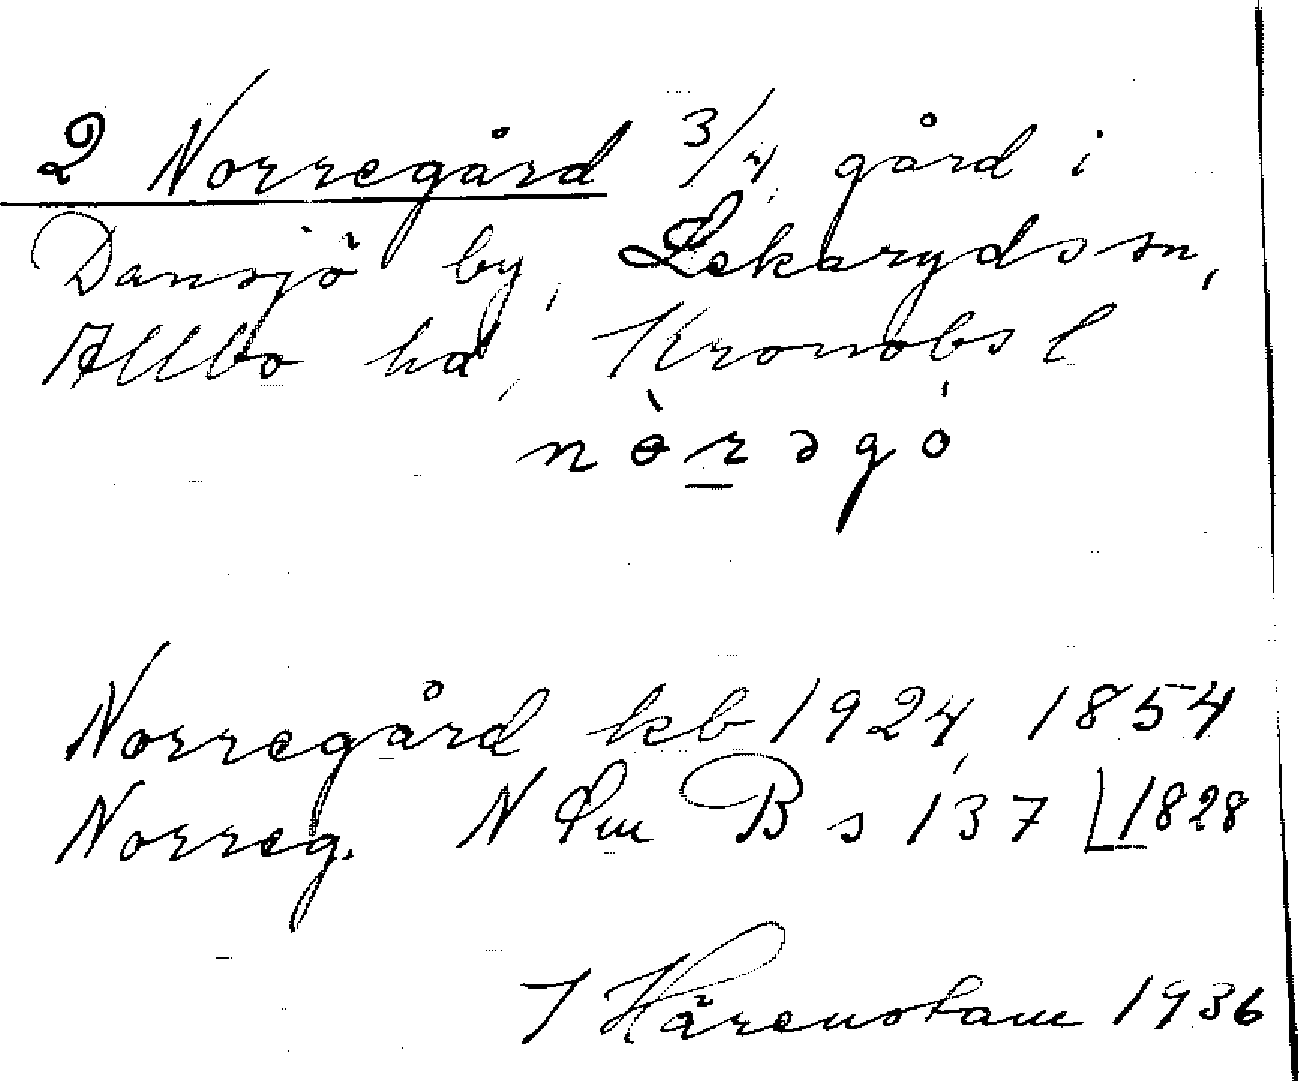 2 Norregård 3/4 gård i
Dansjö by, Lekaryds sn,
Allbo hd, Kronobs l
nɵ̀rəgó
Norregård kb 1924, 1854
Norreg. N Sm B s 137 1828
I Härenstam 1936